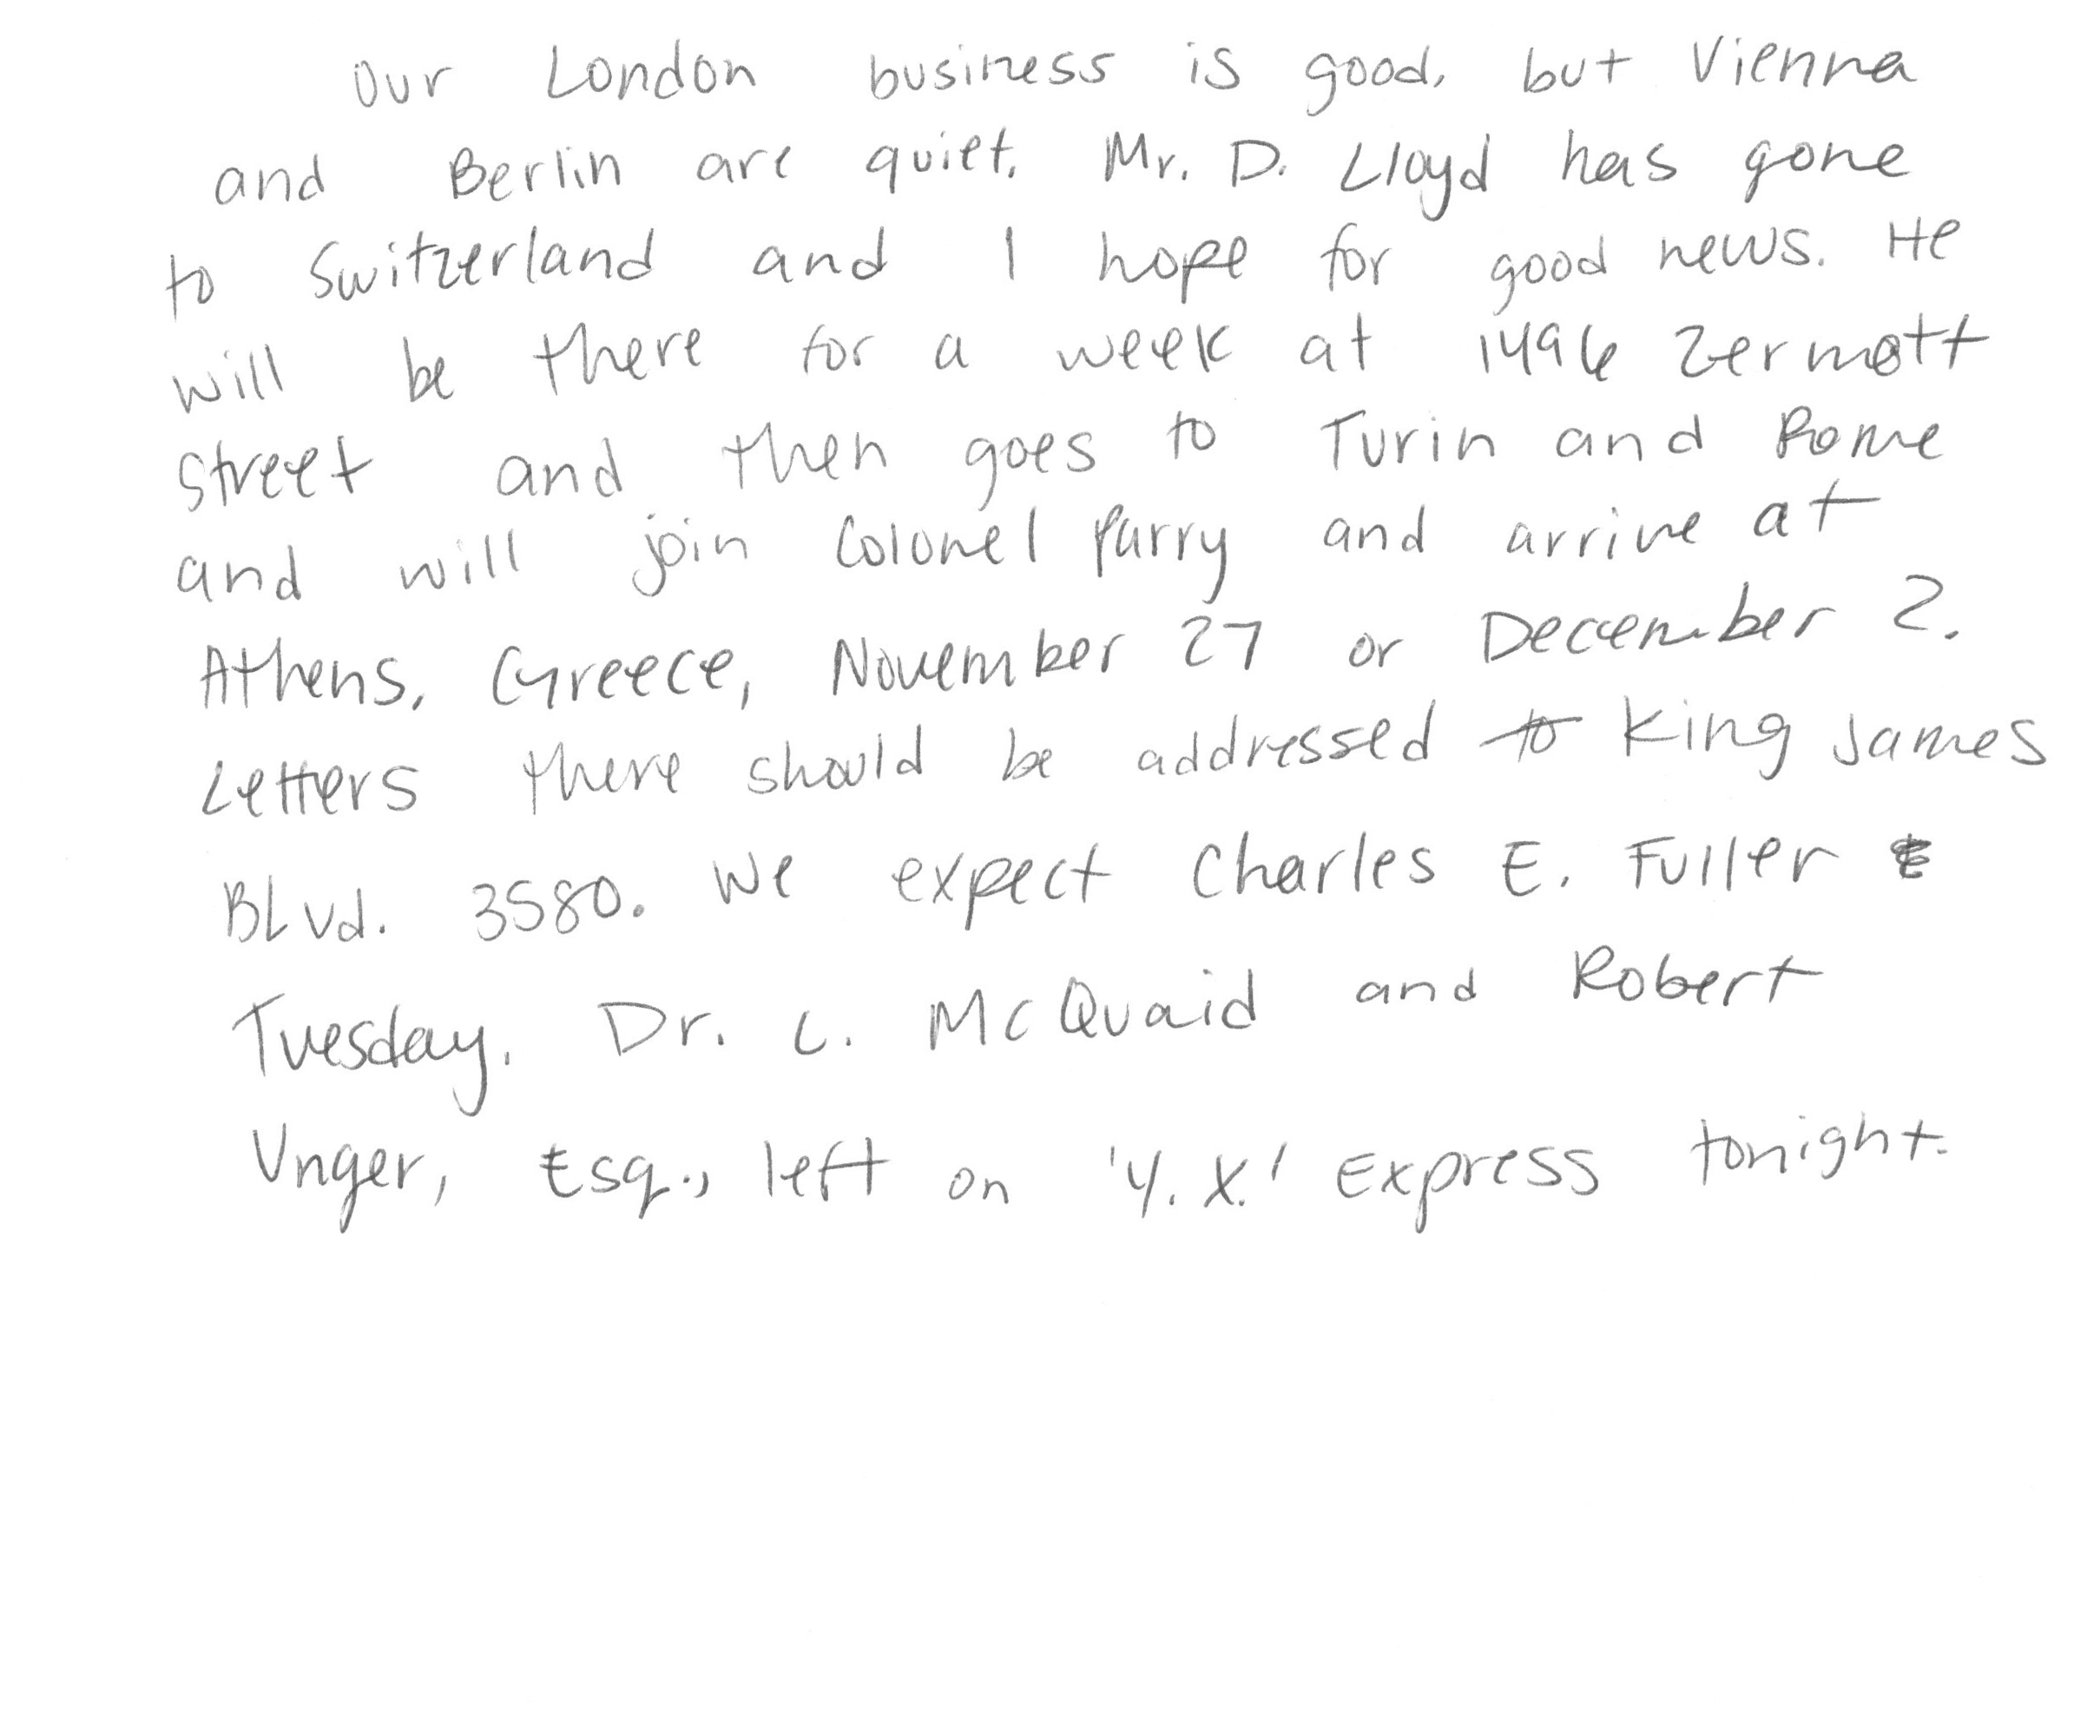 Our London business is good, but Vienna
and Berlin are quiet. Mr. D. Lloyd has gone
to Switzerland and I hope for good news. He
will be there for a week at 1496 Zermott
Street and then goes to Turin and Rome
and will join Colonel Parry and arrive at
Athens, Greece, November 27 or December 2.
Letters there should be addressed to King James
Blvd. 3580. We expect Charles E. Fuller
Tuesday. Dr. L. McQuaid and Robert
Unger, Esq., left on 'Y. X.' Express tonight.